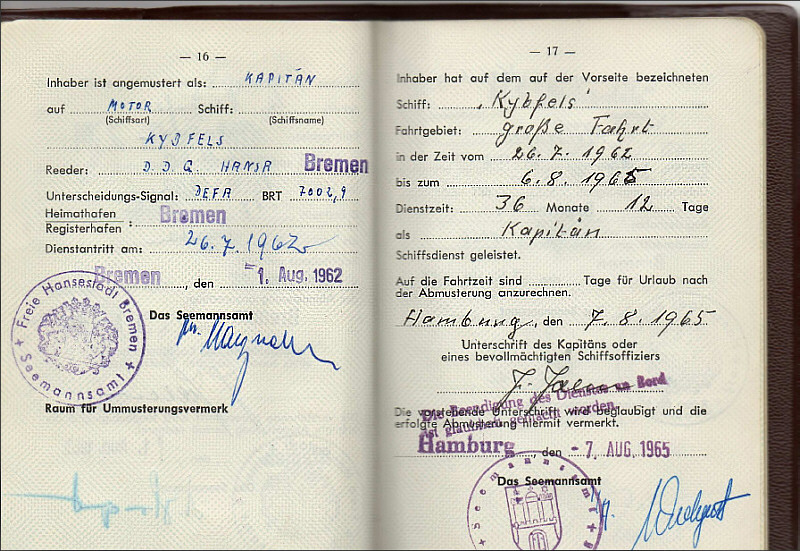 — 16 —
Inhaber ist angemustert als: KAPITÄN
auf MOTOR Schiff:
(Schiffsart) (Schiffsname)
KYBFELS
Reeder: D.D.G. HANSA Bremen
Unterscheidungs-Signal: DEFA BRT 7002,9
Heimathafen
Registerhafen : Bremen
Dienstantritt am: 26.7.1962
Bremen, den 1. Aug. 1962
Das Seemannsamt
Freie Hansestadt Bremen
+ Seemannsamt +
Raum für Ummusterungsvermerk
— 17 —
Inhaber hat auf dem auf der Vorseite bezeichneten
Schiff: "Kybfels"
Fahrtgebiet: große Fahrt
in der Zeit vom 26.7.1962
bis zum 6.8.1965
Dienstzeit: 36 Monate 12 Tage
als Kapitän
Schiffsdienst geleistet.
Auf die Fahrtzeit sind Tage für Urlaub nach
der Abmusterung anzurechnen.
Hamburg, den 7.8.1965
Unterschrift des Kapitäns oder
eines bevollmächtigten Schiffsoffiziers
Die Beendigung des Dienstes an Bord
ist glaubhaft gemacht worden.
Die vorstehende Unterschrift wird beglaubigt und die
erfolgte Abmusterung hiermit vermerkt.
Hamburg, den -7. AUG. 1965
Das Seemannsamt
Seemannsamt